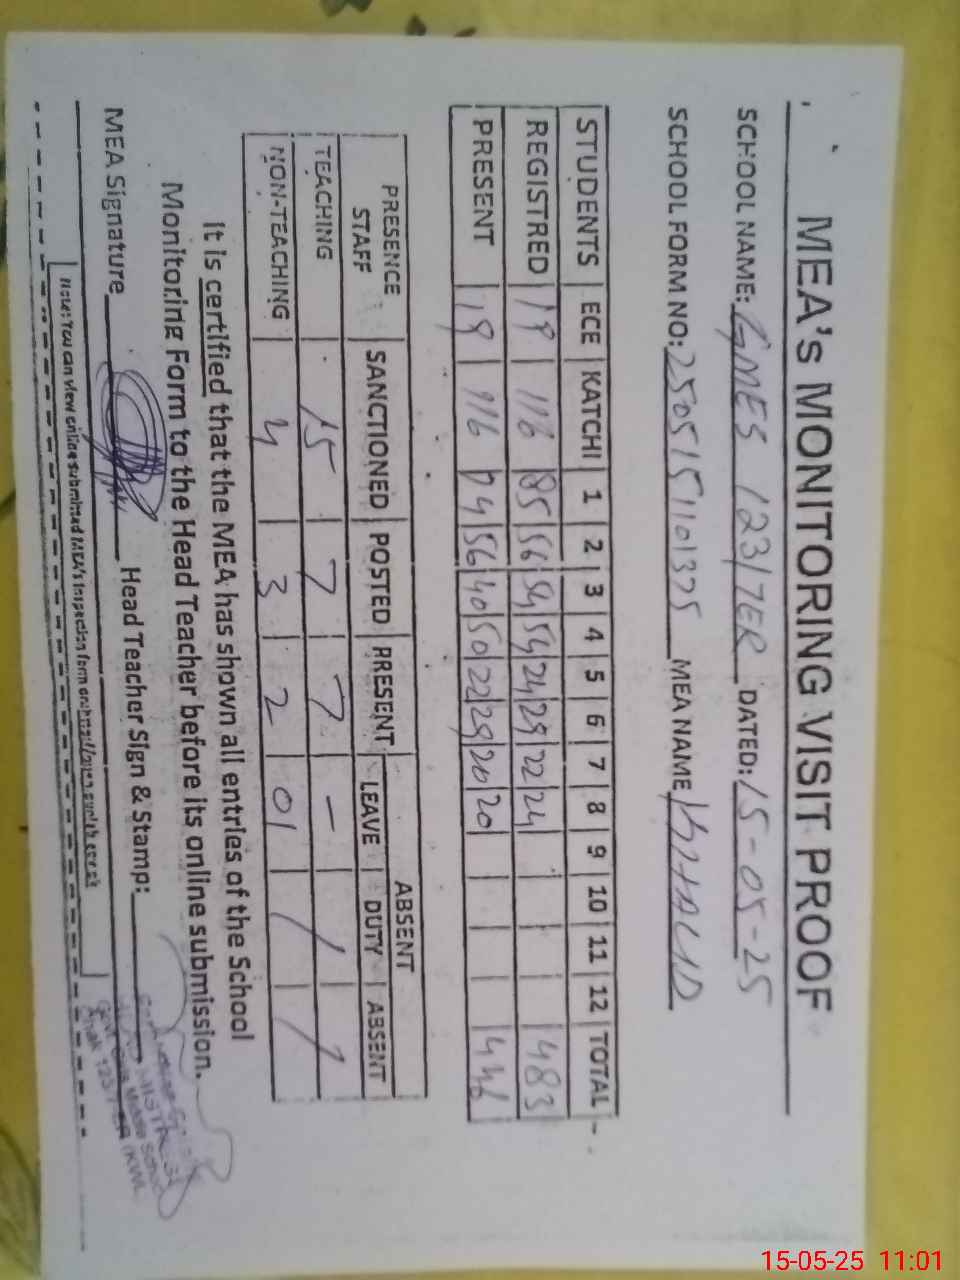 MEA's MONITORING VISIT PROOF
SCHOOL NAME: GMES 123/7ER DATED: 15-05-25
SCHOOL FORM NO: 2505151101375 MEA NAME KHALID
STUDENTS ECE KATCHI 1 2 3 4 5 6 7 8 9 10 11 12 TOTAL
REGISTRED 19 116 85 56 54 54 24 29 22 24 483
PRESENT 19 116 74 56 40 50 22 29 20 20 446
PRESENCE STAFF SANCTIONED POSTED PRESENT ABSENT
LEAVE DUTY ABSENT
TEACHING 15 7 7 - / /
NON-TEACHING 4 3 2 01 / /
It is certified that the MEA has shown all entries of the School
Monitoring Form to the Head Teacher before its online submission.
MEA Signature Head Teacher Sign & Stamp:
Note: You can view online submitted MEA's Inspection form on
Govt. Girls Middle School
Chak 123/7-ER (KWL
15-05-25 11:01